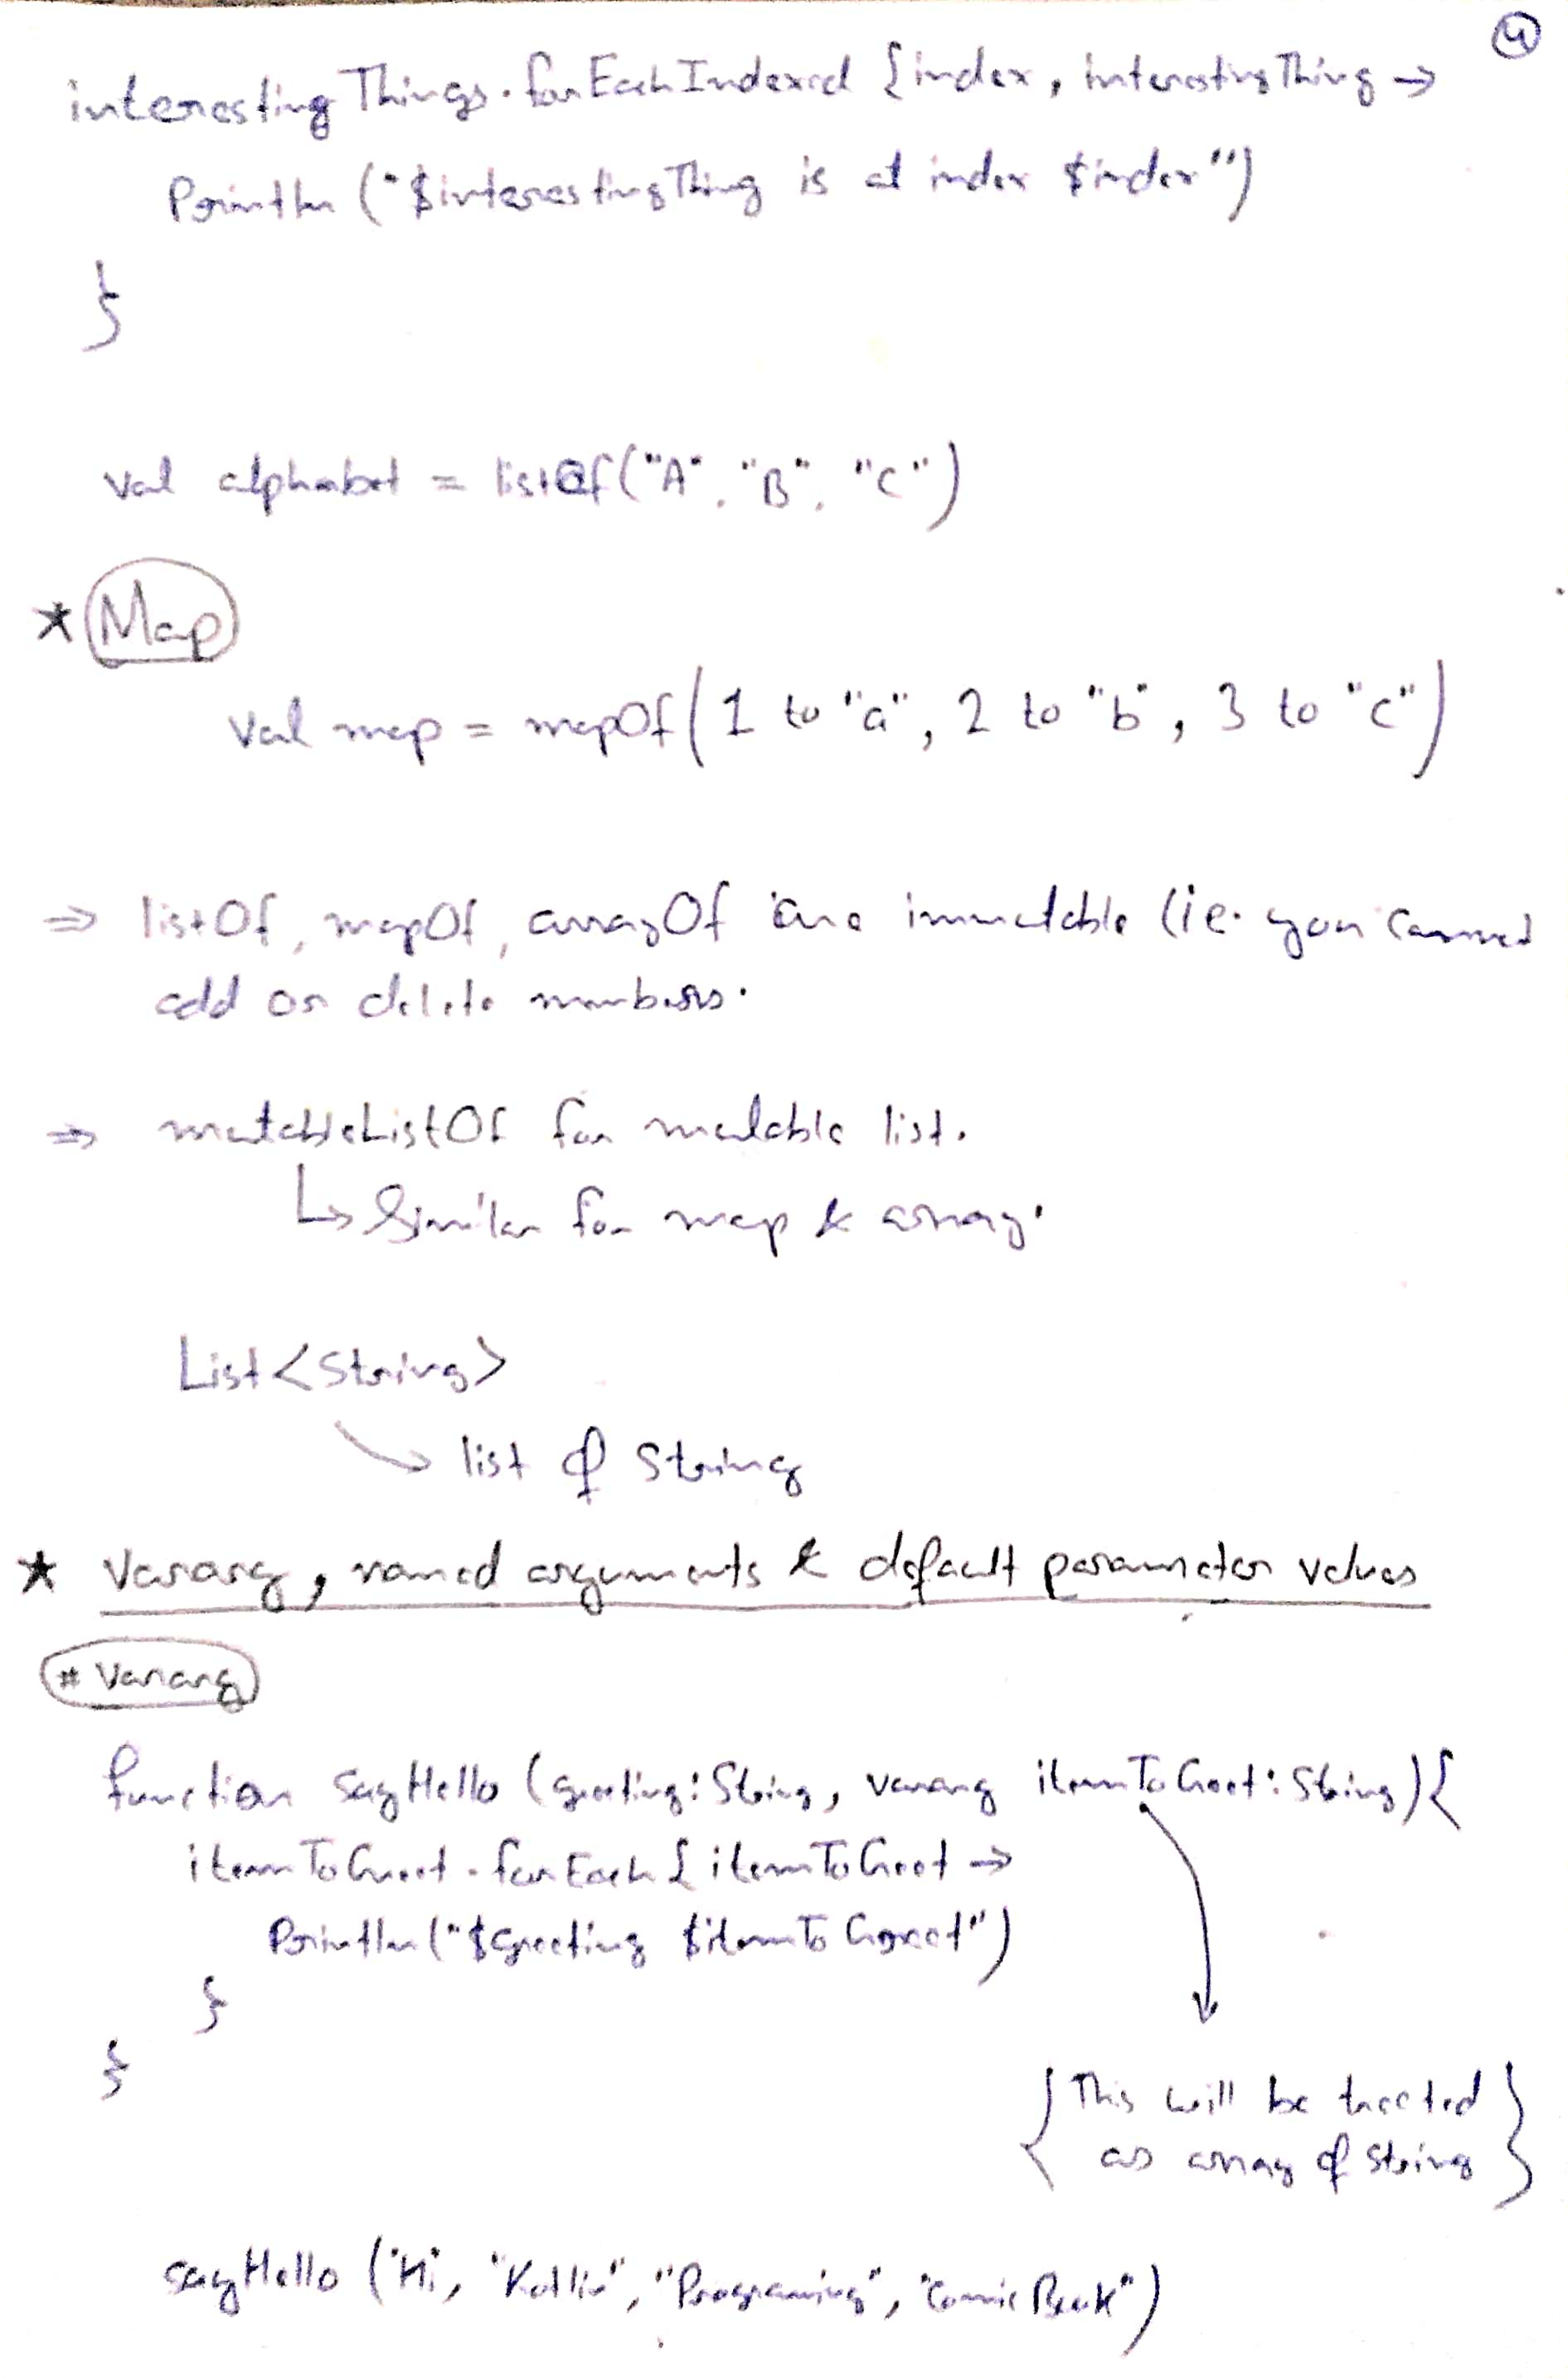 4
interestingThings.forEachIndexed {index, interestingThing →
Println ("$interestingThing is at index $index")
}
val alphabet = listOf("A", "B", "C")
* Map
Val map = mapOf(1 to "a", 2 to "b", 3 to "c")
⇒ listOf, mapOf, arrayOf are immutable (ie. you cannot
add or delete members.
⇒ mutableListOf for mutable list.
↳ Similar for map & array.
List<String>
→ list of String
* Vararg, named arguments & default parameter values
# Vararg
function sayHello (greeting: String, vararg itemToGreet: String) {
itemToGreet.forEach { itemToGreet →
Println("$greeting $itemToGreet")
}
}
{ This will be treated
as array of String }
sayHello ("Hi, "Kotlin", "Programing", "Comic Book")